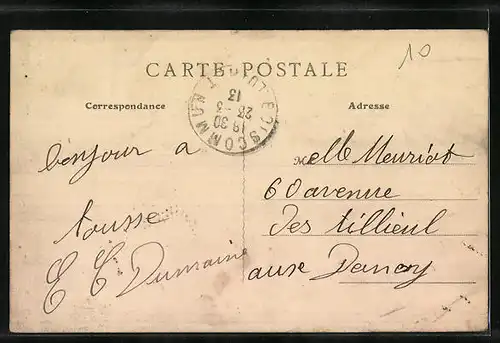 10
CARTE POSTALE
Correspondance
Adresse
18 30
23 - 3
13
bonjour a
tousse
E E Dumaine
Melle Meuriot
60 avenue
des tillieul